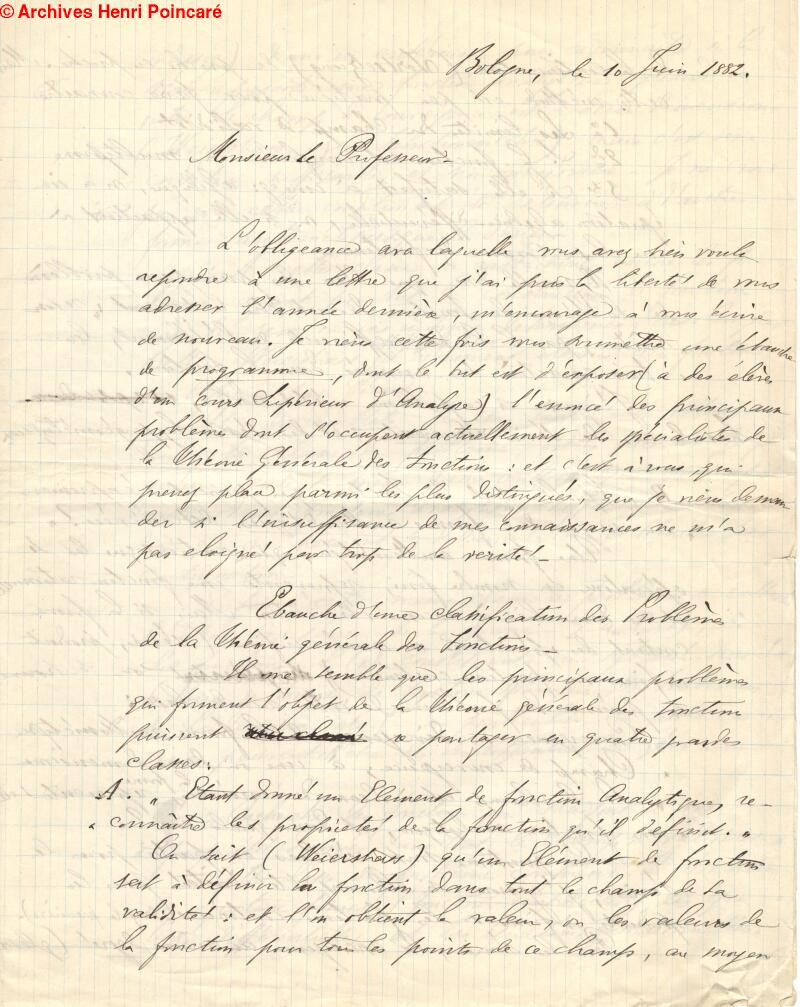 © Archives Henri Poincaré
Bologne, le 10 Juin 1882.
Monsieur le Professeur -
L'obligeance avec laquelle vous avez bien voulu
repondre à une lettre que j'ai pris la liberté de vous
adresser l'année dernière, m'encourage à vous écrire
de nouveau. Je viens cette fois vous soumettre une ébauche
de programme, dont le but est d'exposer (à des élèves
d'un cours Supérieur d'Analyse) l'enoncé des principaux
problèmes dont s'occupent actuellement les spécialistes de
la Théorie Générale des fonctions : et c'est à vous, qui
prenez place parmi les plus distingués, que je viens deman
der si l'insuffisance de mes connaissances ne m'a
pas eloigné par trop de la verité! -
Ebauche d'une classification des Problèmes
de la Théorie générale des Fonctions -
Il me semble que les principaux problèmes
qui forment l'objet de la Théorie générale des fonctions
puissent se partager en quatre grandes
classes:
A. „ Etant donné un Elément de fonction Analytique, re-
„ connaître les propriétés de la fonction qu'il définit. „
On sait (Weierstrass) qu'un Elément de fonction
sert à définir la fonction dans tout le champ de sa
validité : et l'on obtient la valeur, ou les valeurs de
la fonction pour tous les points de ce champ, au moyen